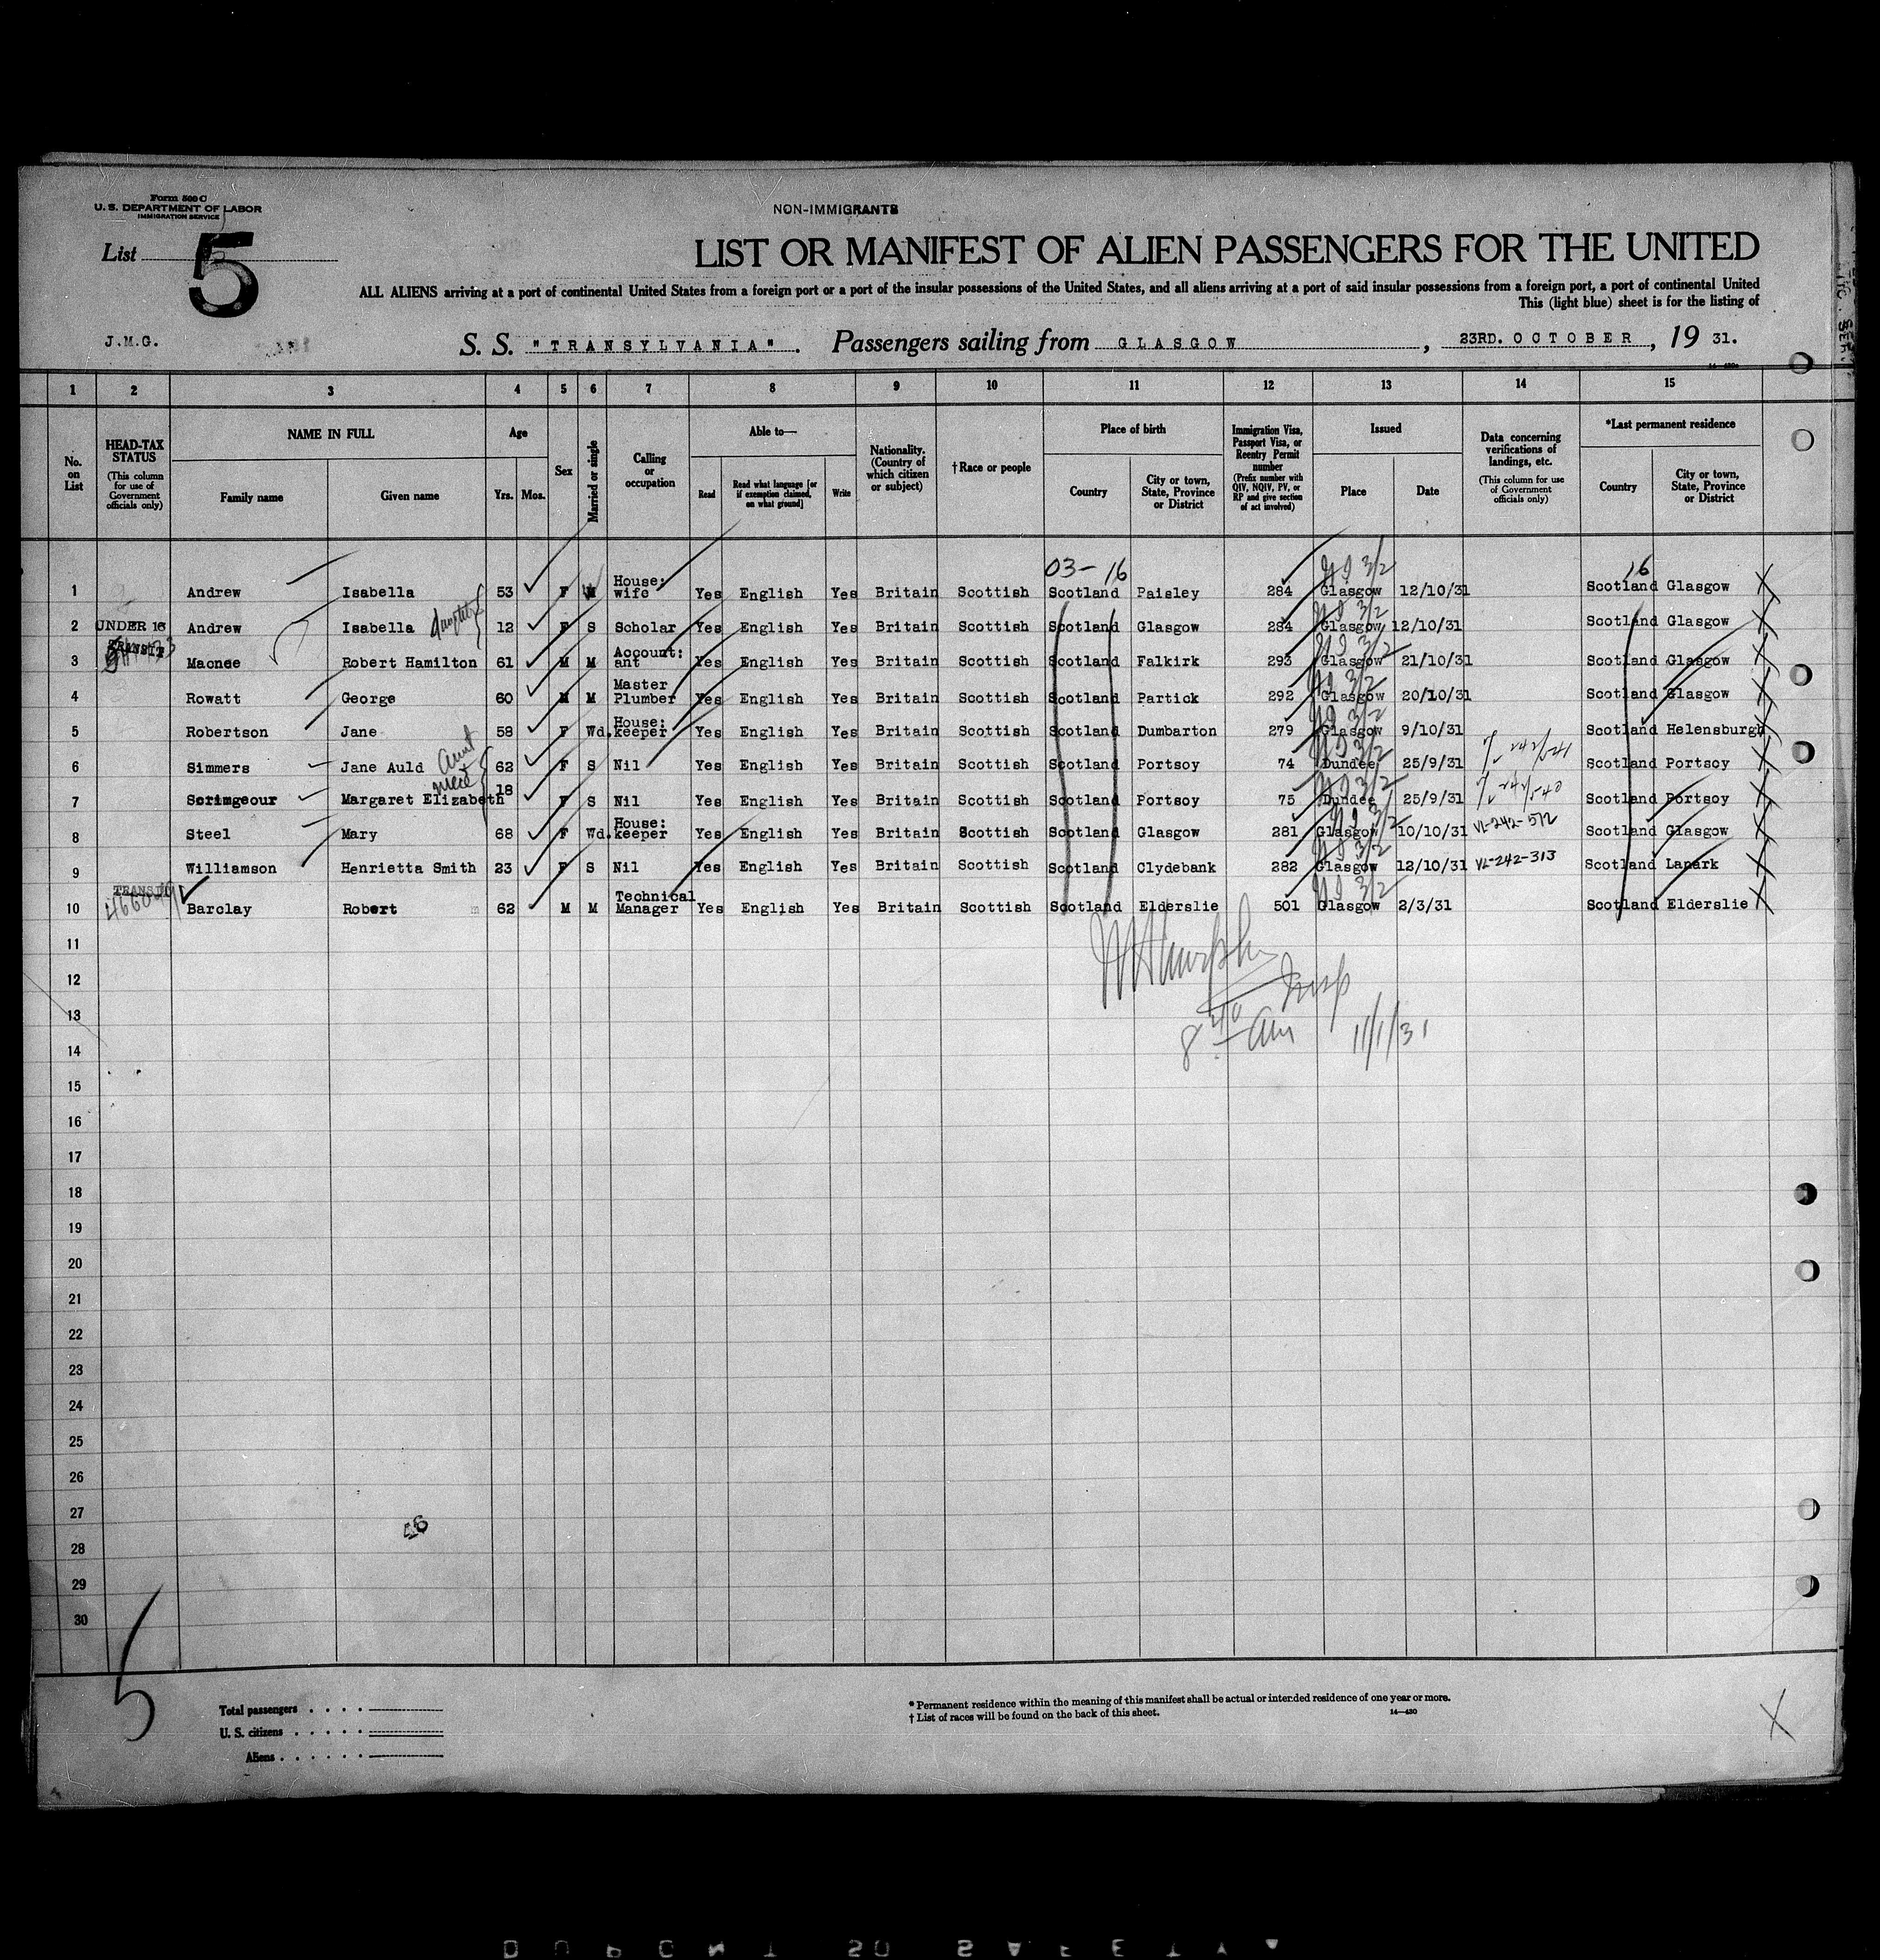 Form 500 C
U. S. DEPARTMENT OF LABOR
IMMIGRATION SERVICE
NON-IMMIGRANTS
List 5
LIST OR MANIFEST OF ALIEN PASSENGERS FOR THE UNITED
ALL ALIENS arriving at a port of continental United States from a foreign port or a port of the insular possessions of the United States, and all aliens arriving at a port of said insular possessions from a foreign port, a port of continental United
This (light blue) sheet is for the listing of
J.M.G. S. S. "TRANSYLVANIA". Passengers sailing from GLASGOW, 23RD. OCTOBER, 19 31.
1 2 3 4 5 6 7 8 9 10 11 12 13 14 15
No. on List
HEAD-TAX STATUS (This column for use of Government officials only)
NAME IN FULL Family name Given name
Age Yrs. Mos.
Sex
Married or single
Calling or occupation
Able to— Read Read what language [or if exemption claimed, on what ground] Write
Nationality. (Country of which citizen or subject)
†Race or people
Place of birth Country City or town, State, Province or District
Immigration Visa, Passport Visa, or Reentry Permit number (Prefix number with QIV, NQIV, PV, or RP and give section of act involved)
Issued Place Date
Data concerning verifications of landings, etc. (This column for use of Government officials only)
*Last permanent residence Country City or town, State, Province or District
03- 16 3/2 16
1 Andrew Isabella 53 F M House: wife Yes English Yes Britain Scottish Scotland Paisley 284 Glasgow 12/10/31 Scotland Glasgow
2 UNDER 16 Andrew Isabella daughter 12 F S Scholar Yes English Yes Britain Scottish Scotland Glasgow 284 3/2 Glasgow 12/10/31 Scotland Glasgow
3 TRANSIT Macnee Robert Hamilton 61 M M Account: ant Yes English Yes Britain Scottish Scotland Falkirk 293 3/2 Glasgow 21/10/31 Scotland Glasgow
4 Rowatt George 60 M M Master Plumber Yes English Yes Britain Scottish Scotland Partick 292 3/2 Glasgow 20/10/31 Scotland Glasgow
5 Robertson Jane 58 F Wd. House: keeper Yes English Yes Britain Scottish Scotland Dumbarton 279 3/2 Glasgow 9/10/31 Scotland Helensburgh
6 Simmers Jane Auld Aunt 62 F S Nil Yes English Yes Britain Scottish Scotland Portsoy 74 3/2 Dundee 25/9/31 Scotland Portsoy
7 Scrimgeour Margaret Elizabeth niece 18 F S Nil Yes English Yes Britain Scottish Scotland Portsoy 75 3/2 Dundee 25/9/31 Scotland Portsoy
8 Steel Mary 68 F Wd. House: keeper Yes English Yes Britain Scottish Scotland Glasgow 281 3/2 Glasgow 10/10/31 VL-242-512 Scotland Glasgow
9 Williamson Henrietta Smith 23 F S Nil Yes English Yes Britain Scottish Scotland Clydebank 282 3/2 Glasgow 12/10/31 VL-242-313 Scotland Lanark
10 TRANSIT Barclay Robert 62 M M Technical Manager Yes English Yes Britain Scottish Scotland Elderslie 501 3/2 Glasgow 2/3/31 Scotland Elderslie
11
12 Insp
13
14 8 40 am 11/1/31
15
16
17
18
19
20
21
22
23
24
25
26
27
28
29
30
5
Total passengers
U. S. citizens
Aliens
* Permanent residence within the meaning of this manifest shall be actual or intended residence of one year or more.
† List of races will be found on the back of this sheet.
14—430
X
DUPONT SAFETY